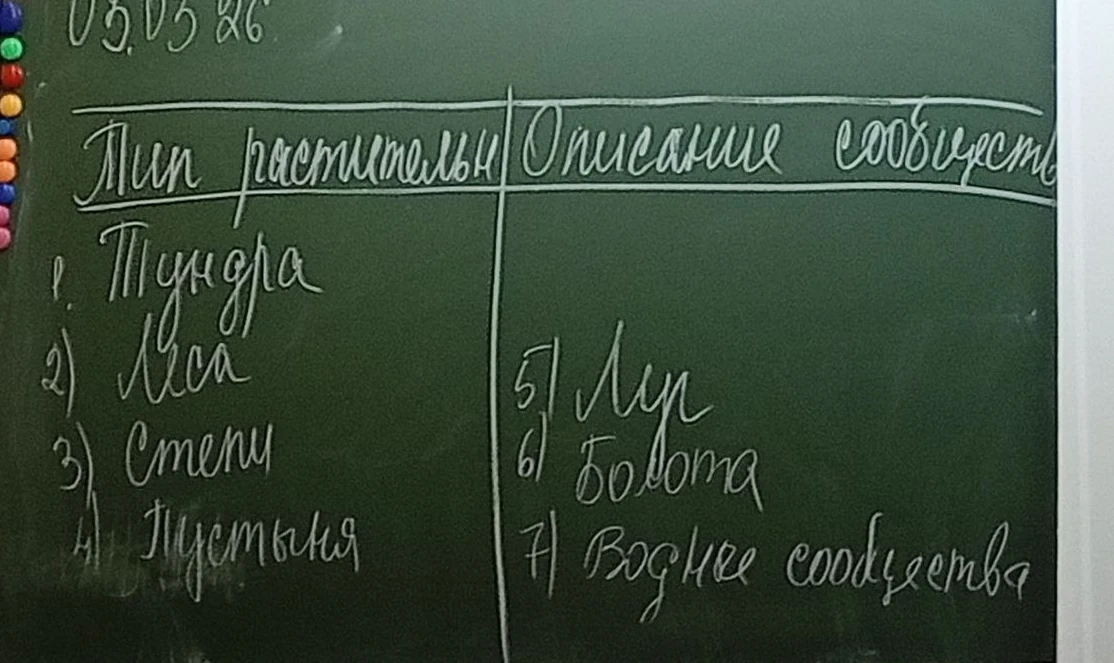 03.03 26
Тип растительн Описание сообществ
1. Тундра
2) Леса
3) Степи
4) Пустыня
5) Луг
6) Болота
7) Водные сообщества